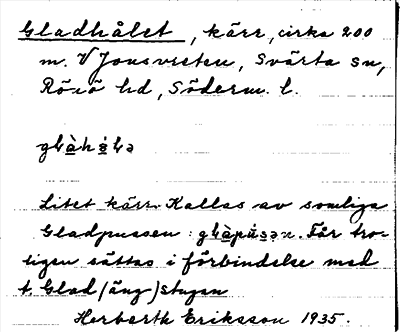 Gladhålet, kärr, cirka 200
m. V Jonsvreten, Svärta sn,
Rönö hd, Söderm. l.
Litet kärr. Kallas av somliga
Gladpussen: Får tro-
ligen sättas i förbindelse med
t. Glad(äng)stugan
Herbarth Eriksson 1935.